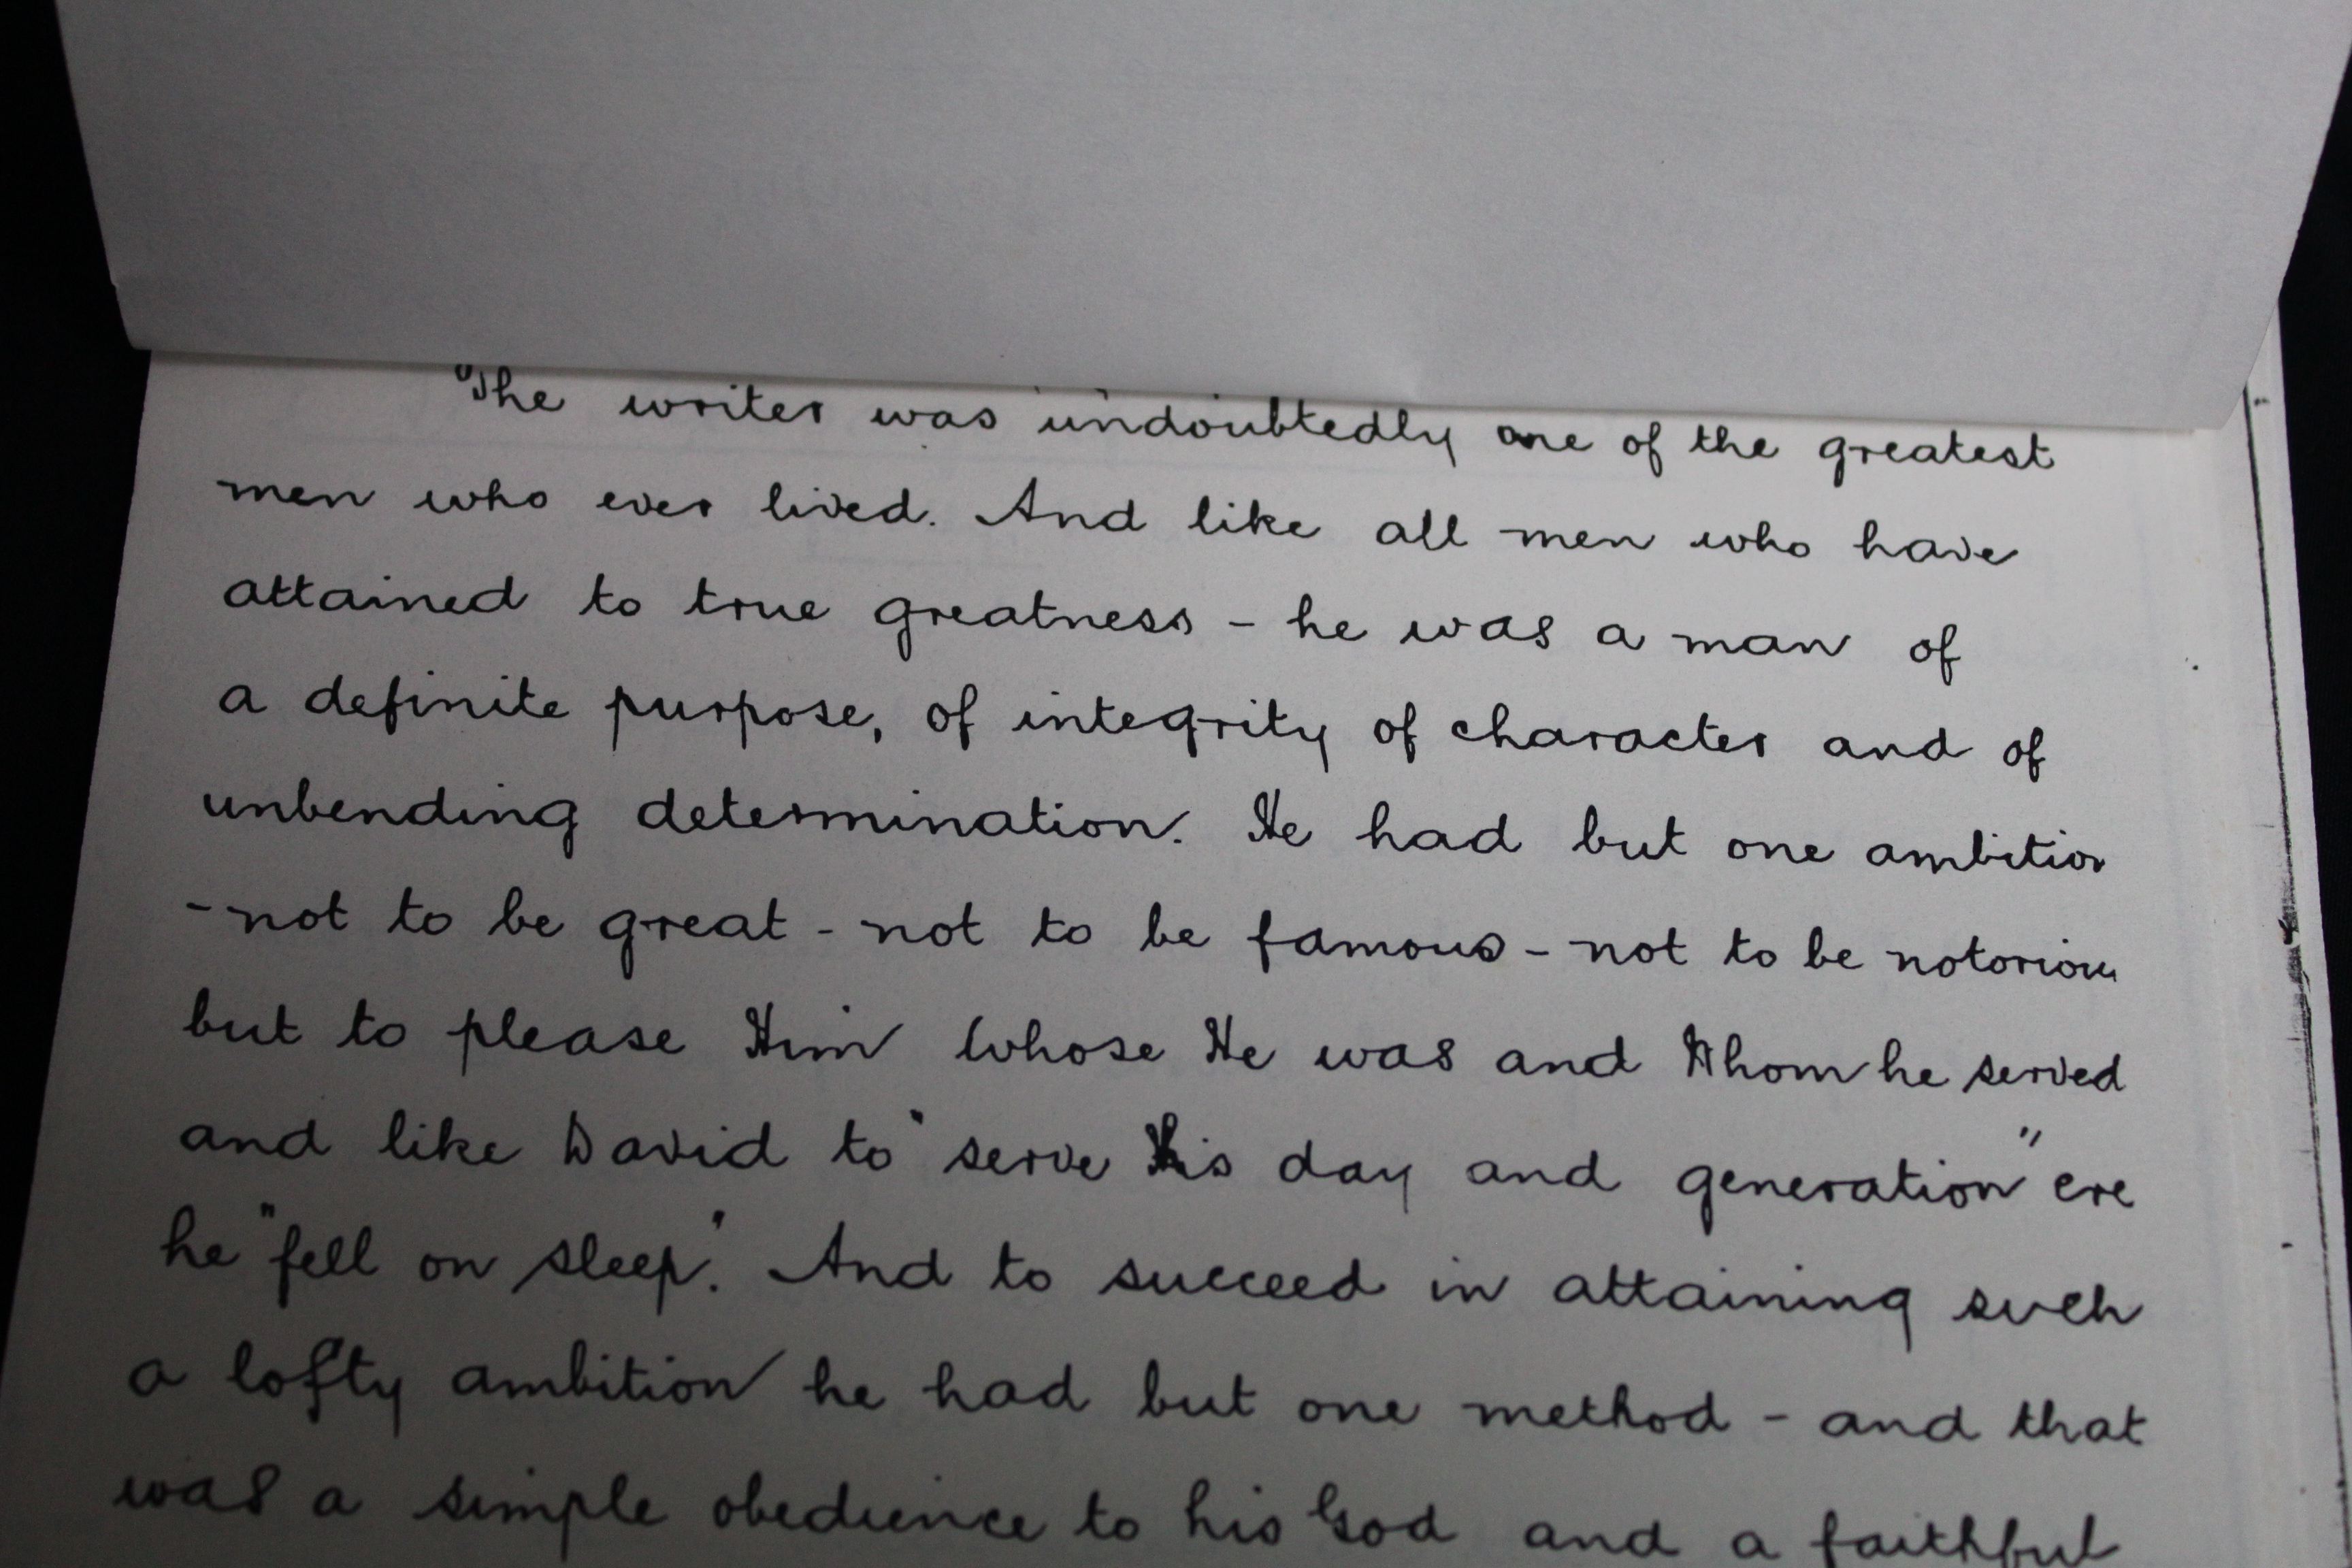 The writer was undoubtedly one of the greatest
men who ever lived. And like all men who have
attained to true greatness - he was a man of
a definite purpose, of integrity of character and of
unbending determination. He had but one ambition
- not to be great - not to be famous - not to be notorious
but to please Him Whose He was and Whom he served
and like David to "serve his day and generation" ere
he "fell on sleep". And to succeed in attaining such
a lofty ambition he had but one method - and that
was a simple obedience to his God and a faithful